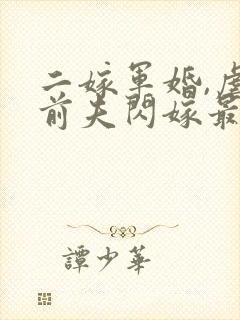 二嫁軍婚,虐
前夫閃嫁最
譚少華